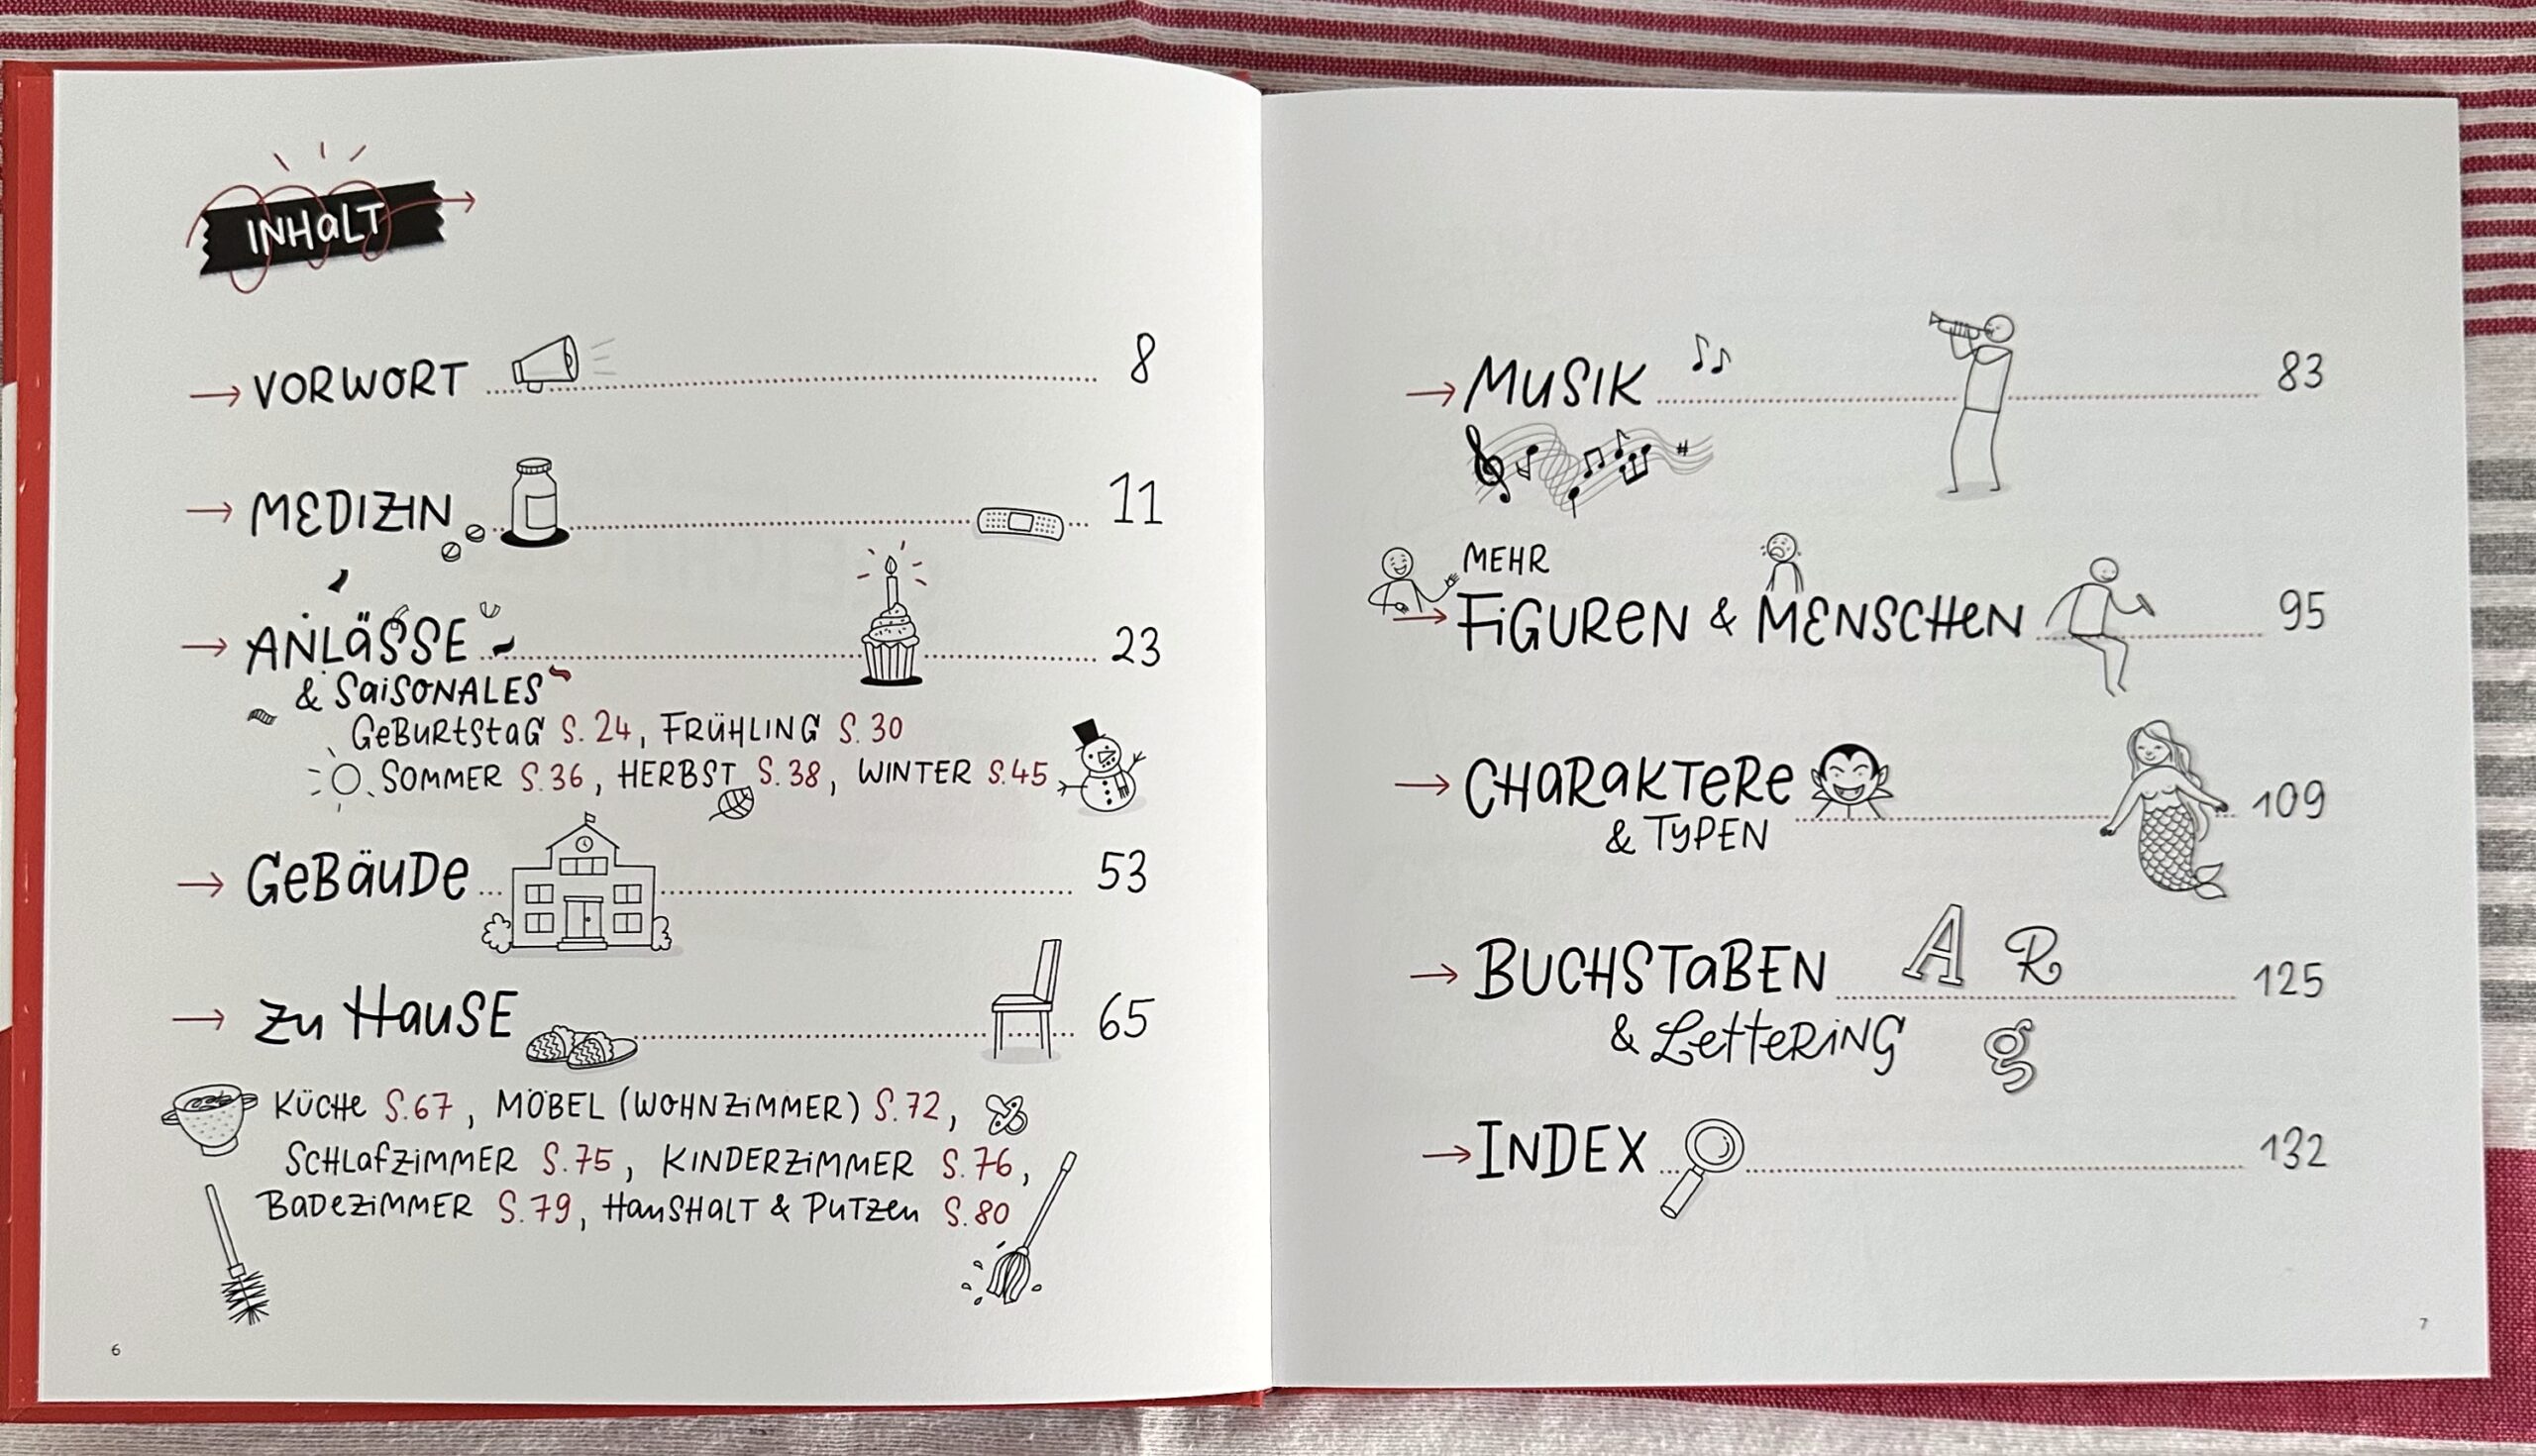 INHALT
→ VORWORT 8
→ MEDIZIN 11
→ ANLÄSSE 23
& SAISONALES
GEBURTSTAG S. 24, FRÜHLING S. 30
SOMMER S. 36, HERBST S. 38, WINTER S. 45
→ GEBÄUDE 53
→ ZU HAUSE 65
KÜCHE S. 67, MÖBEL (WOHNZIMMER) S. 72,
SCHLAFZIMMER S. 75, KINDERZIMMER S. 76,
BADEZIMMER S. 79, HAUSHALT & PUTZEN S. 80
6
→ MUSIK 83
MEHR
→ FIGUREN & MENSCHEN 95
→ CHARAKTERE 109
& TYPEN
→ BUCHSTABEN A R 125
& LETTERING g
→ INDEX 132
7